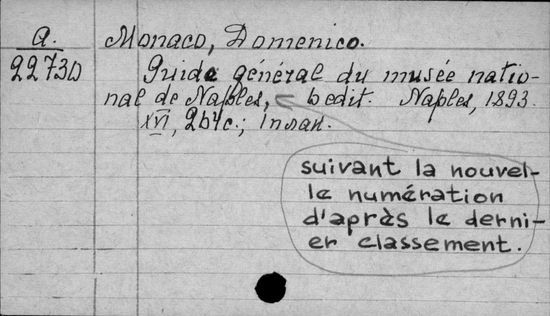 a. Monaco, Domenico.
22730 Guide général du musée natio-
nal de Naples, 6 edit. Naples, 1893.
XVI, 264c.; 1план.
suivant la nouvel-
le numération
d'après le derni-
er classement.